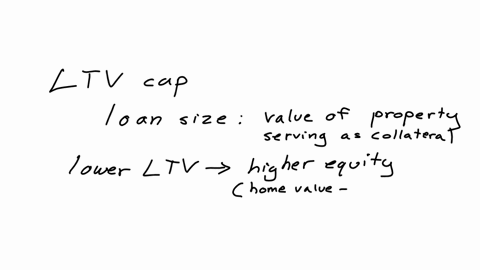 LTV cap
loan size: value of property
serving as collateral
lower LTV → higher equity
(home value -